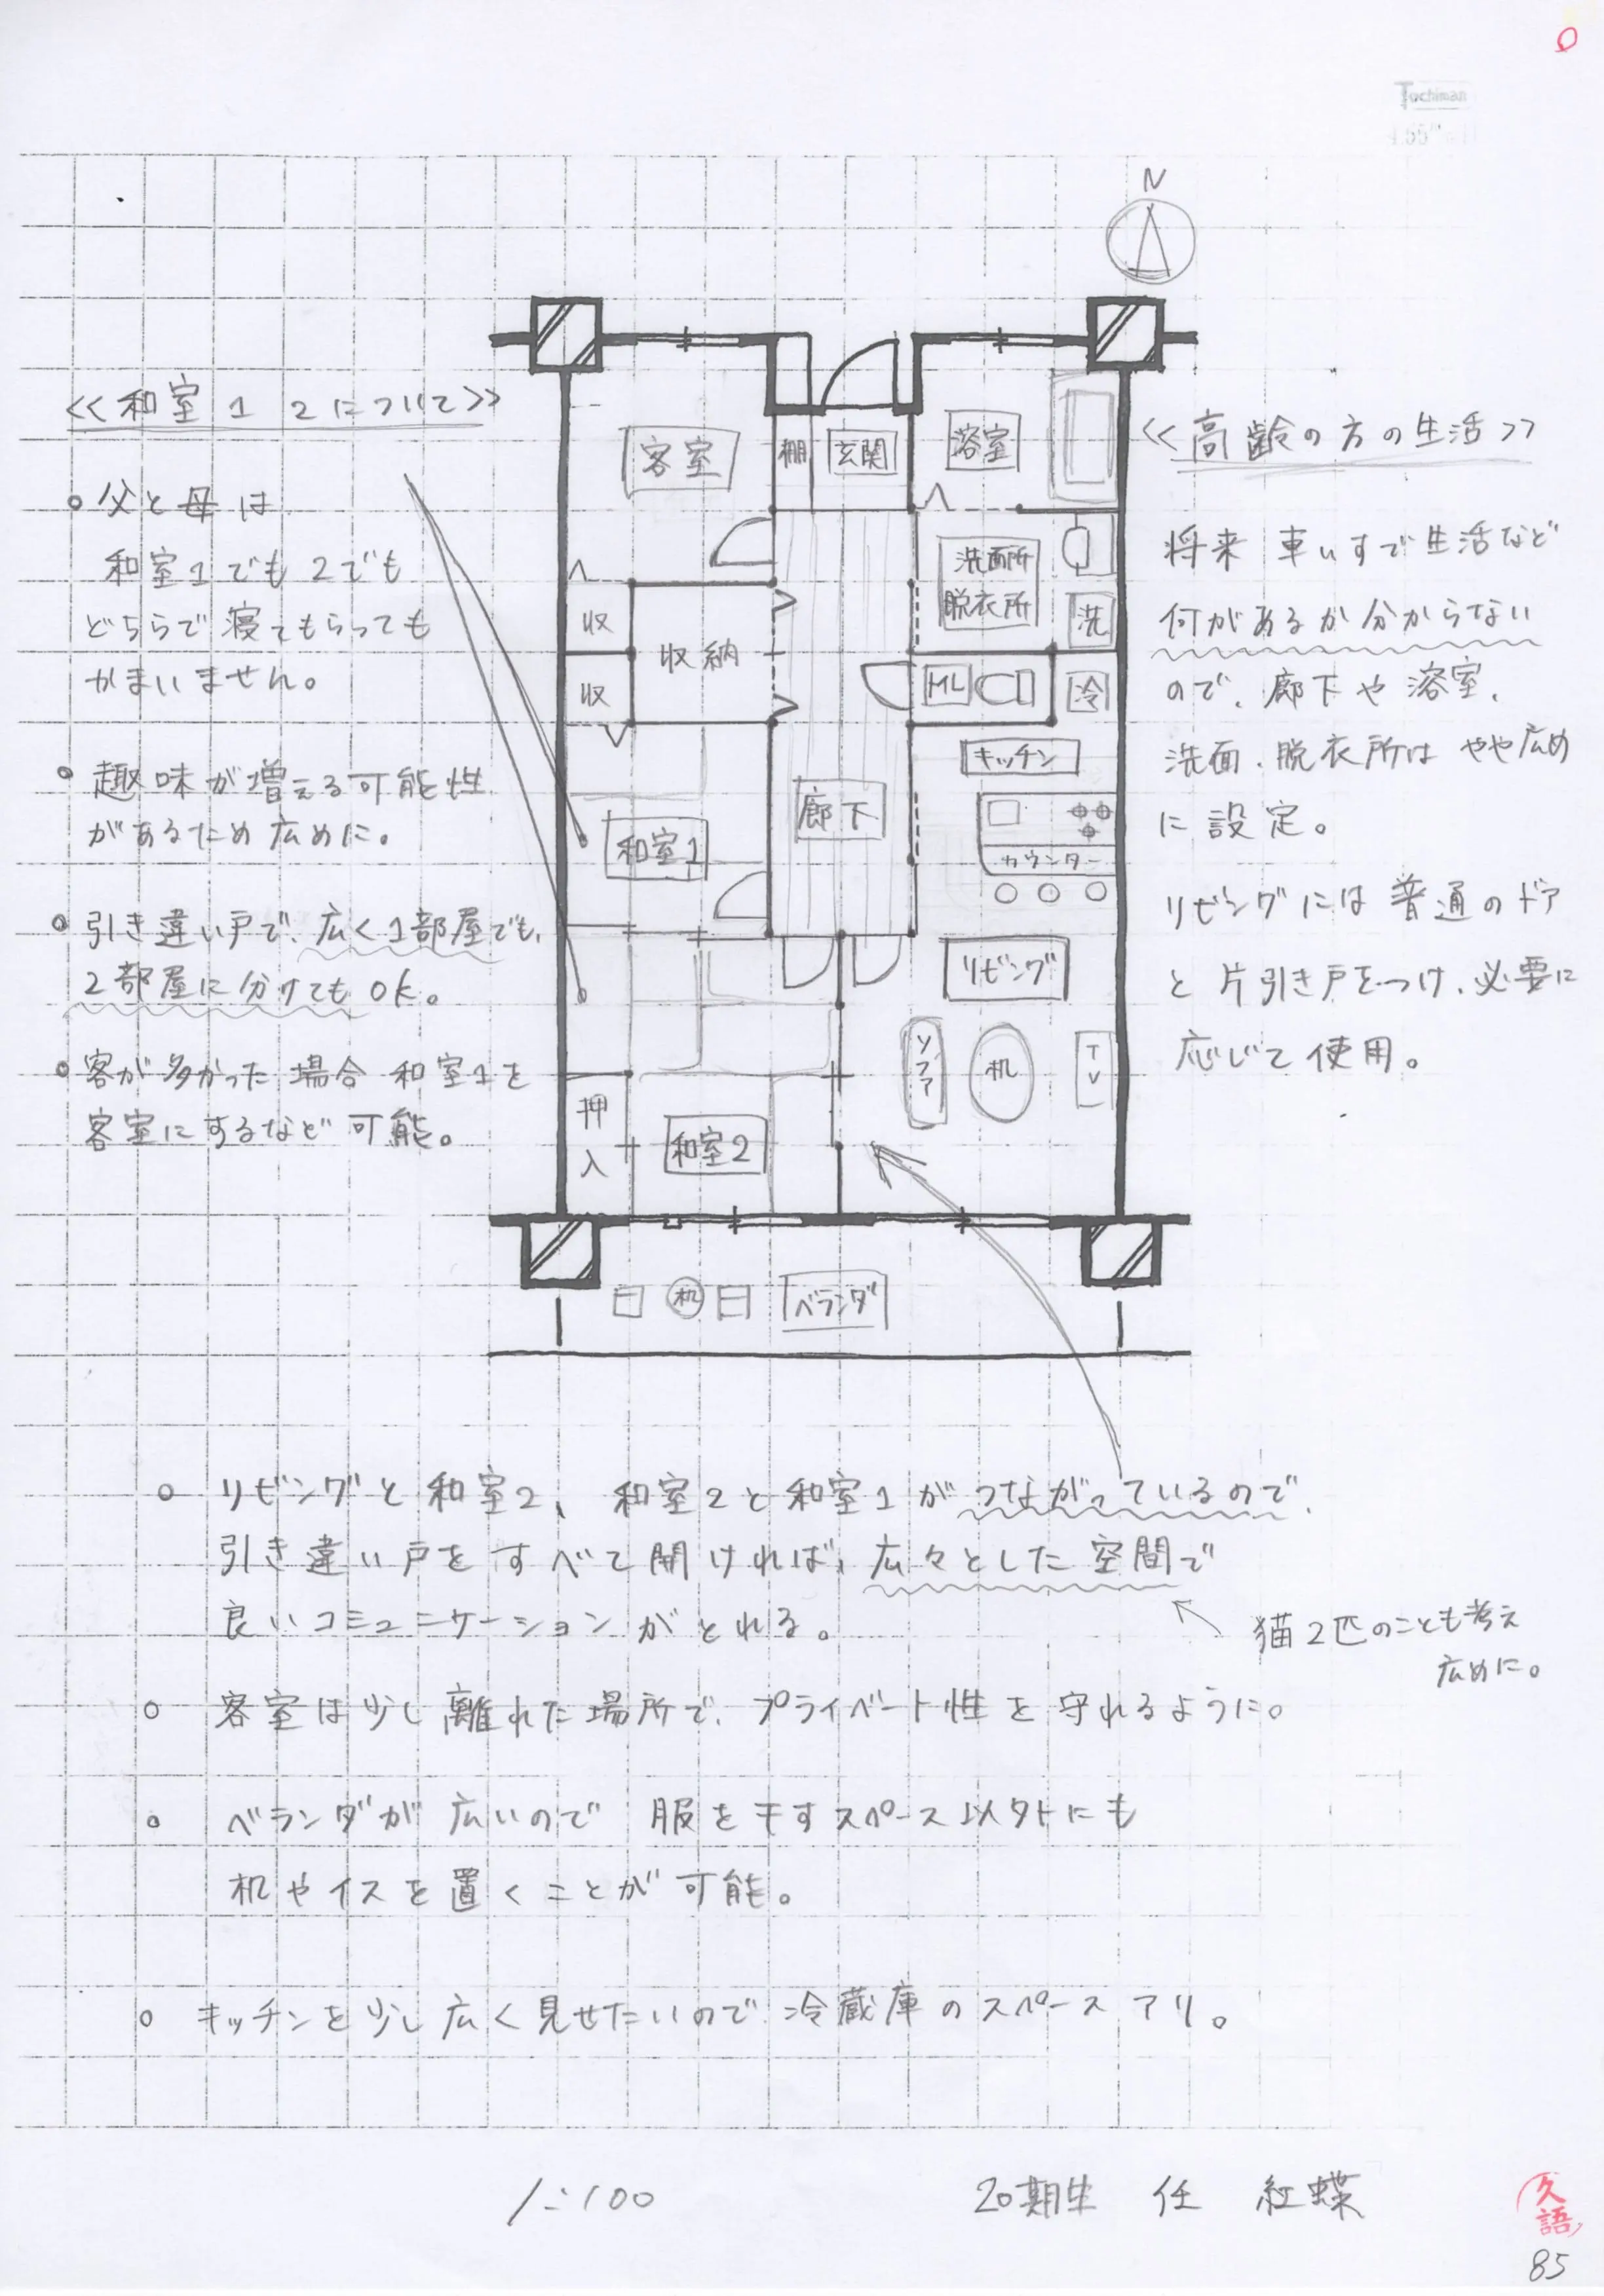 Tochiman
N
<<和室1 2について>>
○父と母は
和室1でも2でも
どちらで寝てもらっても
かまいません。
○趣味が増える可能性
があるため広めに。
○引き違い戸で、広く1部屋でも、
2部屋に分けてもOK。
○客が多かった場合 和室1を
客室にするなど可能。
客室
棚
玄関
浴室
洗面所
脱衣所
洗
収
収納
収
冷
キッチン
カウンター
廊下
和室1
リビング
ソファ
机
TV
押入
和室2
机
ベランダ
<<高齢の方の生活>>
将来 車いすで生活など
何があるか分からない
ので、廊下や浴室、
洗面、脱衣所はやや広め
に設定。
リビングには普通のドア
と片引き戸をつけ、必要に
応じて使用。
○ リビングと和室2、和室2と和室1がつながっているので、
引き違い戸をすべて開ければ、広々とした空間で
良いコミュニケーションがとれる。
猫2匹のことも考え
広めに。
○ 客室は少し離れた場所で、プライベート性を守れるように。
○ ベランダが広いので 服を干すスペース以外にも
机やイスを置くことが可能。
○ キッチンを少し広く見せたいので、冷蔵庫のスペースアリ。
1:100
20期生 任 紅蝶
久語
85